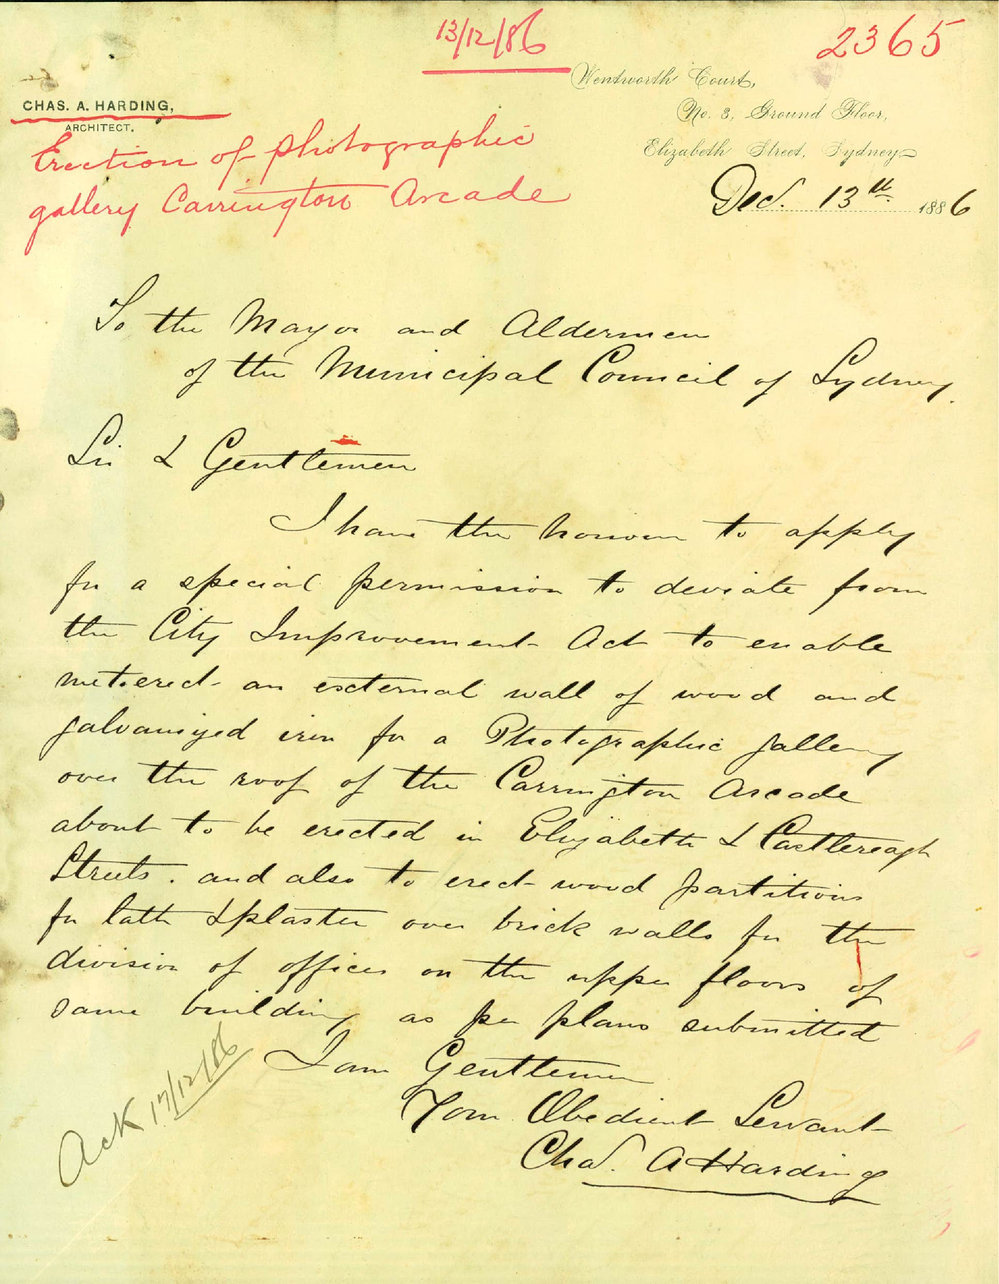 13/12/86
2365
CHAS. A. HARDING,
ARCHITECT.
Wentworth Court,
No. 3, Ground Floor,
Elizabeth Street, Sydney
Dec. 13th 1886
Erection of photographic
gallery Carrington Arcade
To the Mayor and Aldermen
of the Municipal Council of Sydney.
Sir & Gentlemen
I have the honour to apply
for a special permission to deviate from
the City Improvement Act to enable
me to erect an external wall of wood and
galvanized iron for a Photographic gallery
over the roof of the Carrington Arcade
about to be erected in Elizabeth & Castlereagh
Streets. and also to erect wood partitions
for lath & plaster over brick walls for the
division of offices on the upper floors of
same building as per plans submitted
I am Gentlemen
Your Obedient Servant
Chas. A Harding
Ack 17/12/86